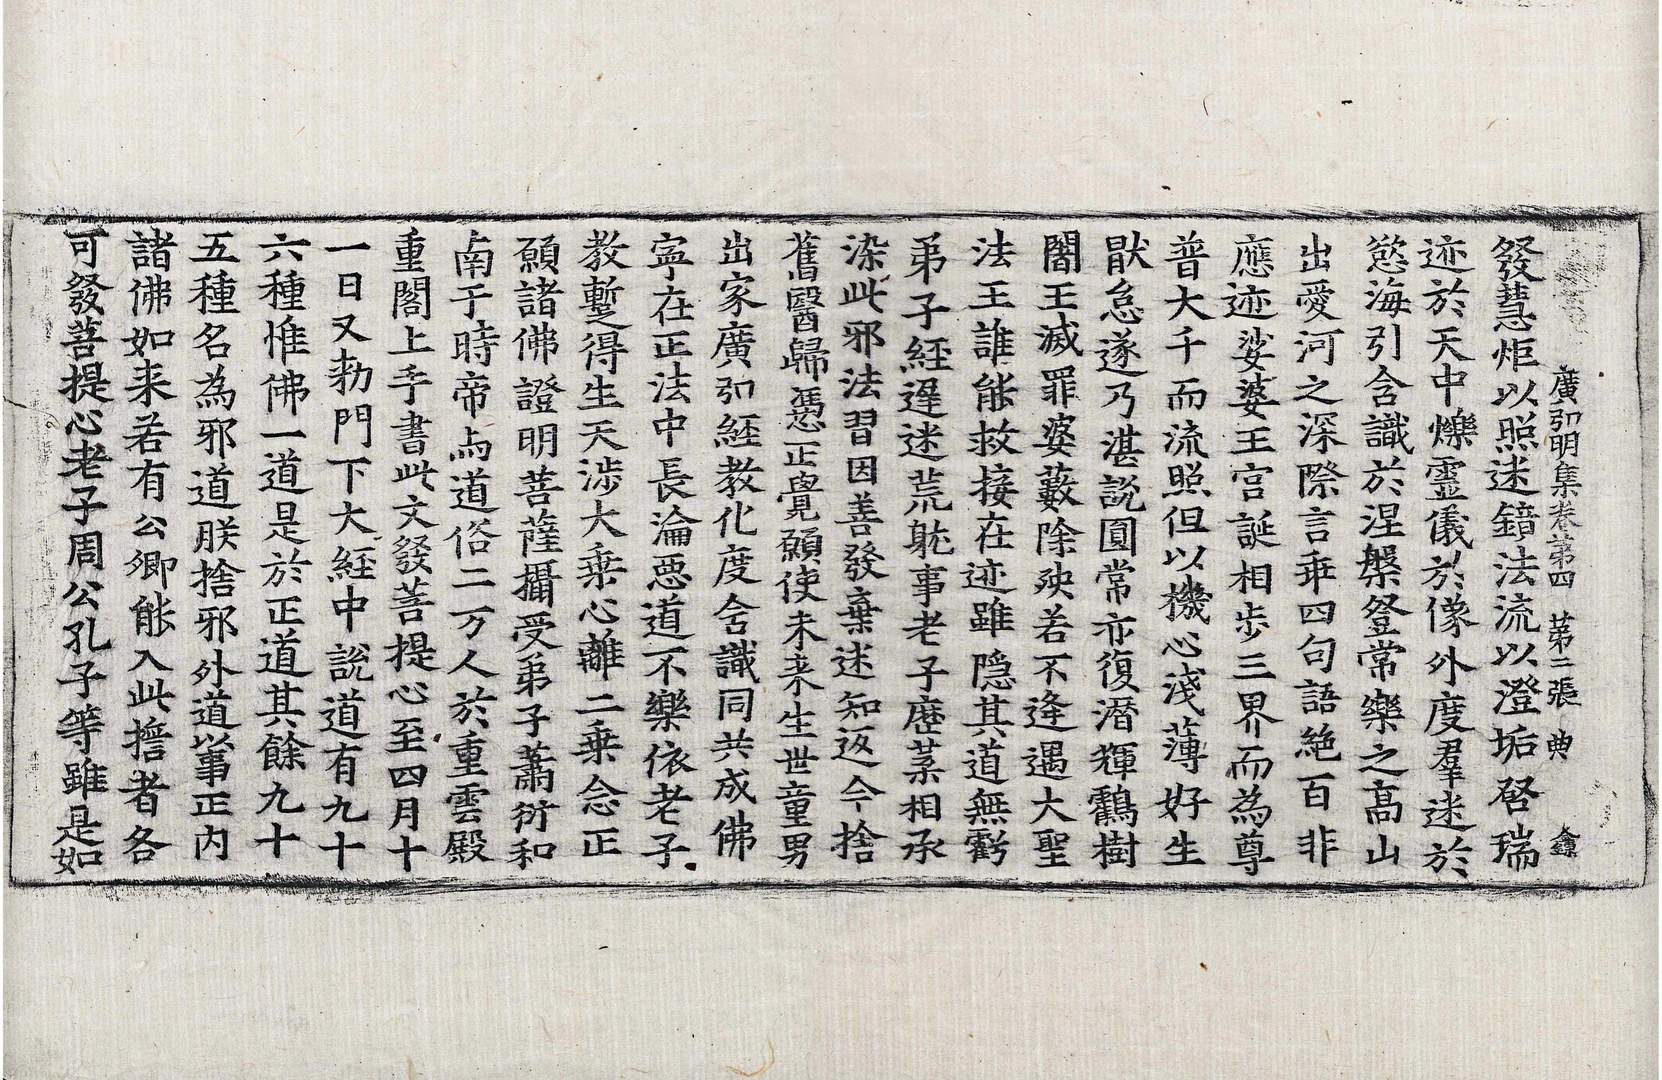 廣弘明集卷第四 第二張 典
發慧炬以照迷鏡法流以澄垢啓瑞
迹於天中爍靈儀於像外度羣迷於
慾海引含識於涅槃登常樂之高山
出愛河之深際言乖四句語絕百非
應迹娑婆王宮誕相步三界而為尊
普大千而流照但以機心淺薄好生
猒怠遂乃湛說圓常亦復潛輝鶴樹
闍王滅罪婆藪除殃若不逢遇大聖
法王誰能救接在迹雖隱其道無虧
弟子經遲迷荒躭事老子歷葉相承
染此邪法習因善發棄迷知返今捨
舊醫歸憑正覺願使未來生世童男
出家廣弘經教化度含識同共成佛
寧在正法中長淪惡道不樂依老子
教蹔得生天涉大乘心離二乘念正
願諸佛證明菩薩攝受弟子蕭衍和
南于時帝與道俗二万人於重雲殿
重閣上手書此文發菩提心至四月十
一日又勑門下大經中說道有九十
六種惟佛一道是於正道其餘九十
五種名為邪道朕捨邪外道以事正內
諸佛如来若有公卿能入此擔者各
可發菩提心老子周公孔子等雖是如